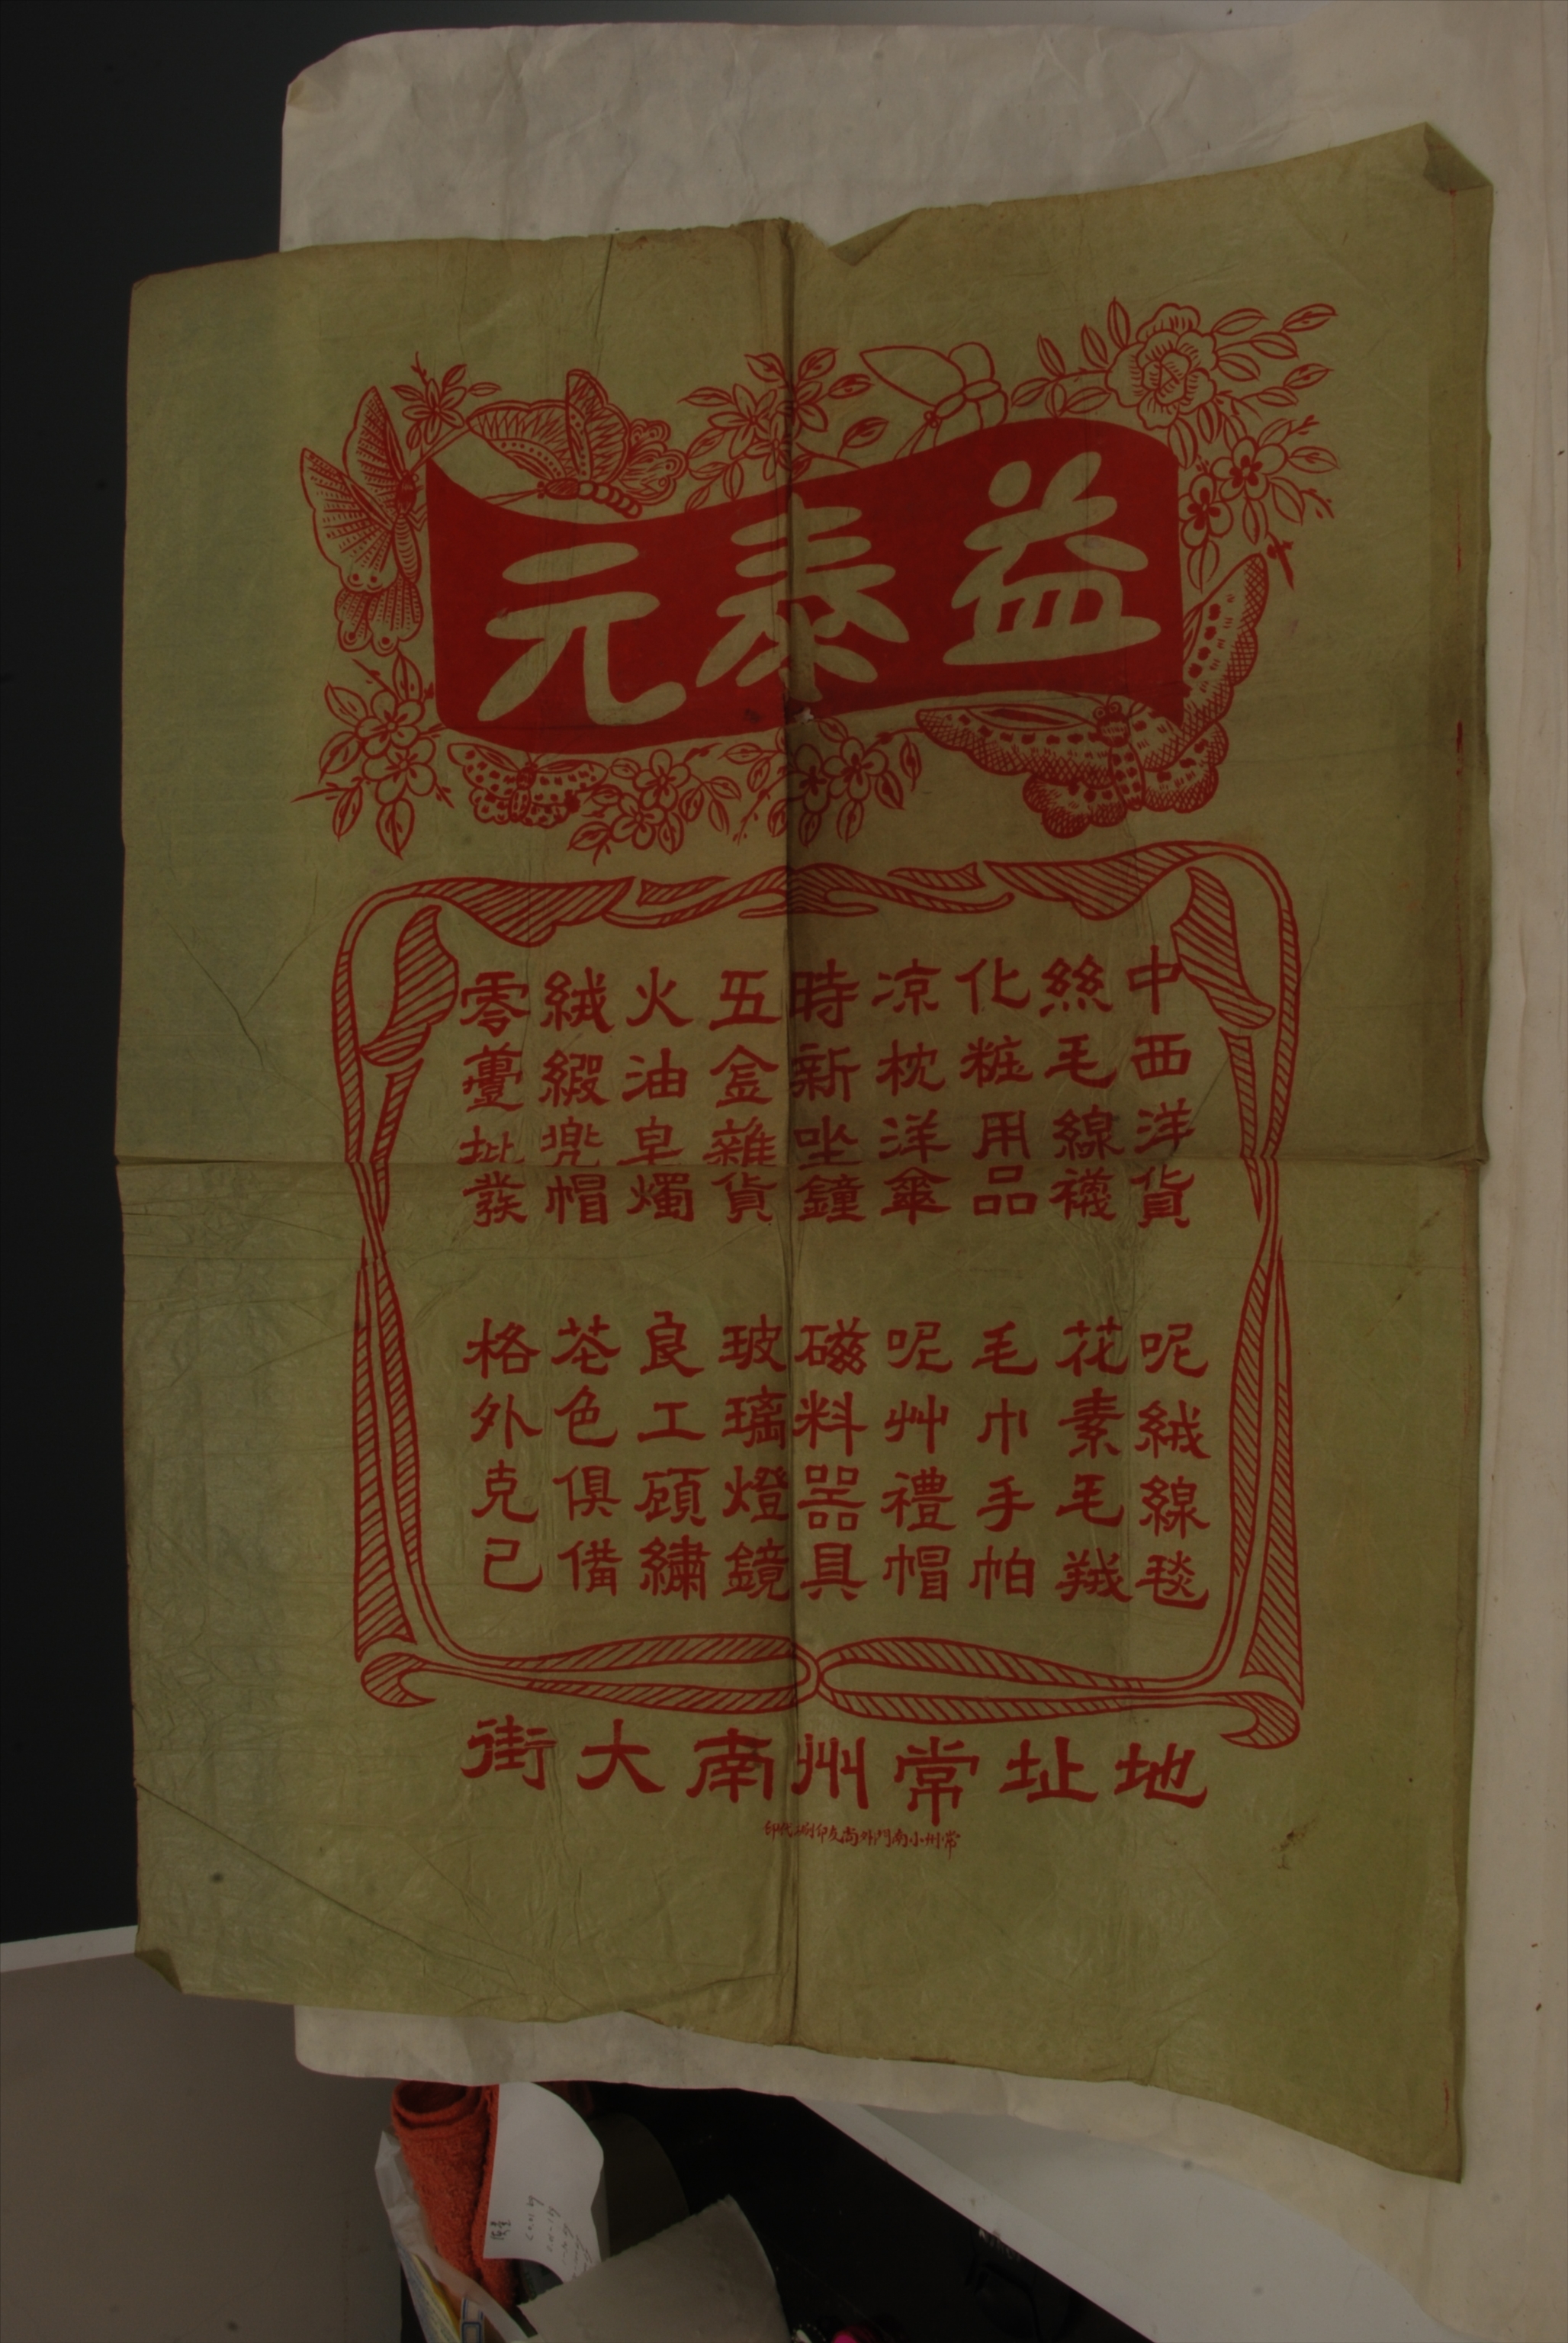 益泰元
中西洋貨
絲毛線襪
化粧用品
凉枕洋傘
時新坐鐘
五金雜貨
火油皂燭
絨緞兠帽
零躉批發
呢絨線毯
花素毛羢
毛巾手帕
呢艸禮帽
磁料器具
玻璃燈鏡
良工顧繡
花色俱備
格外克己
地址常州南大街
常州小南門外尚友印刷代印